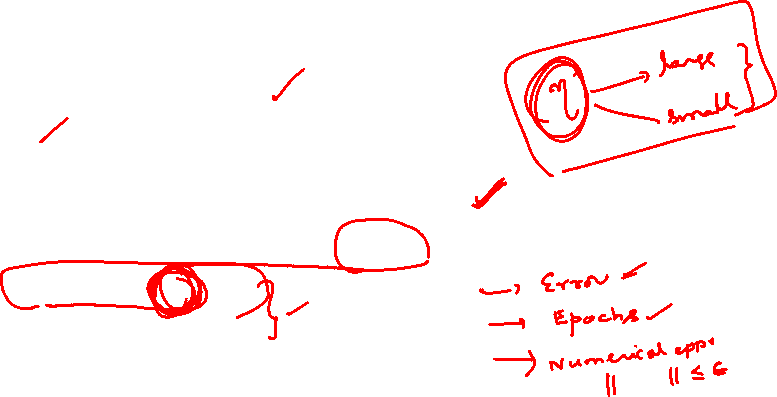 η → large
small
→ Error
→ Epochs
→ Numerical app.
|| || ≤ ε